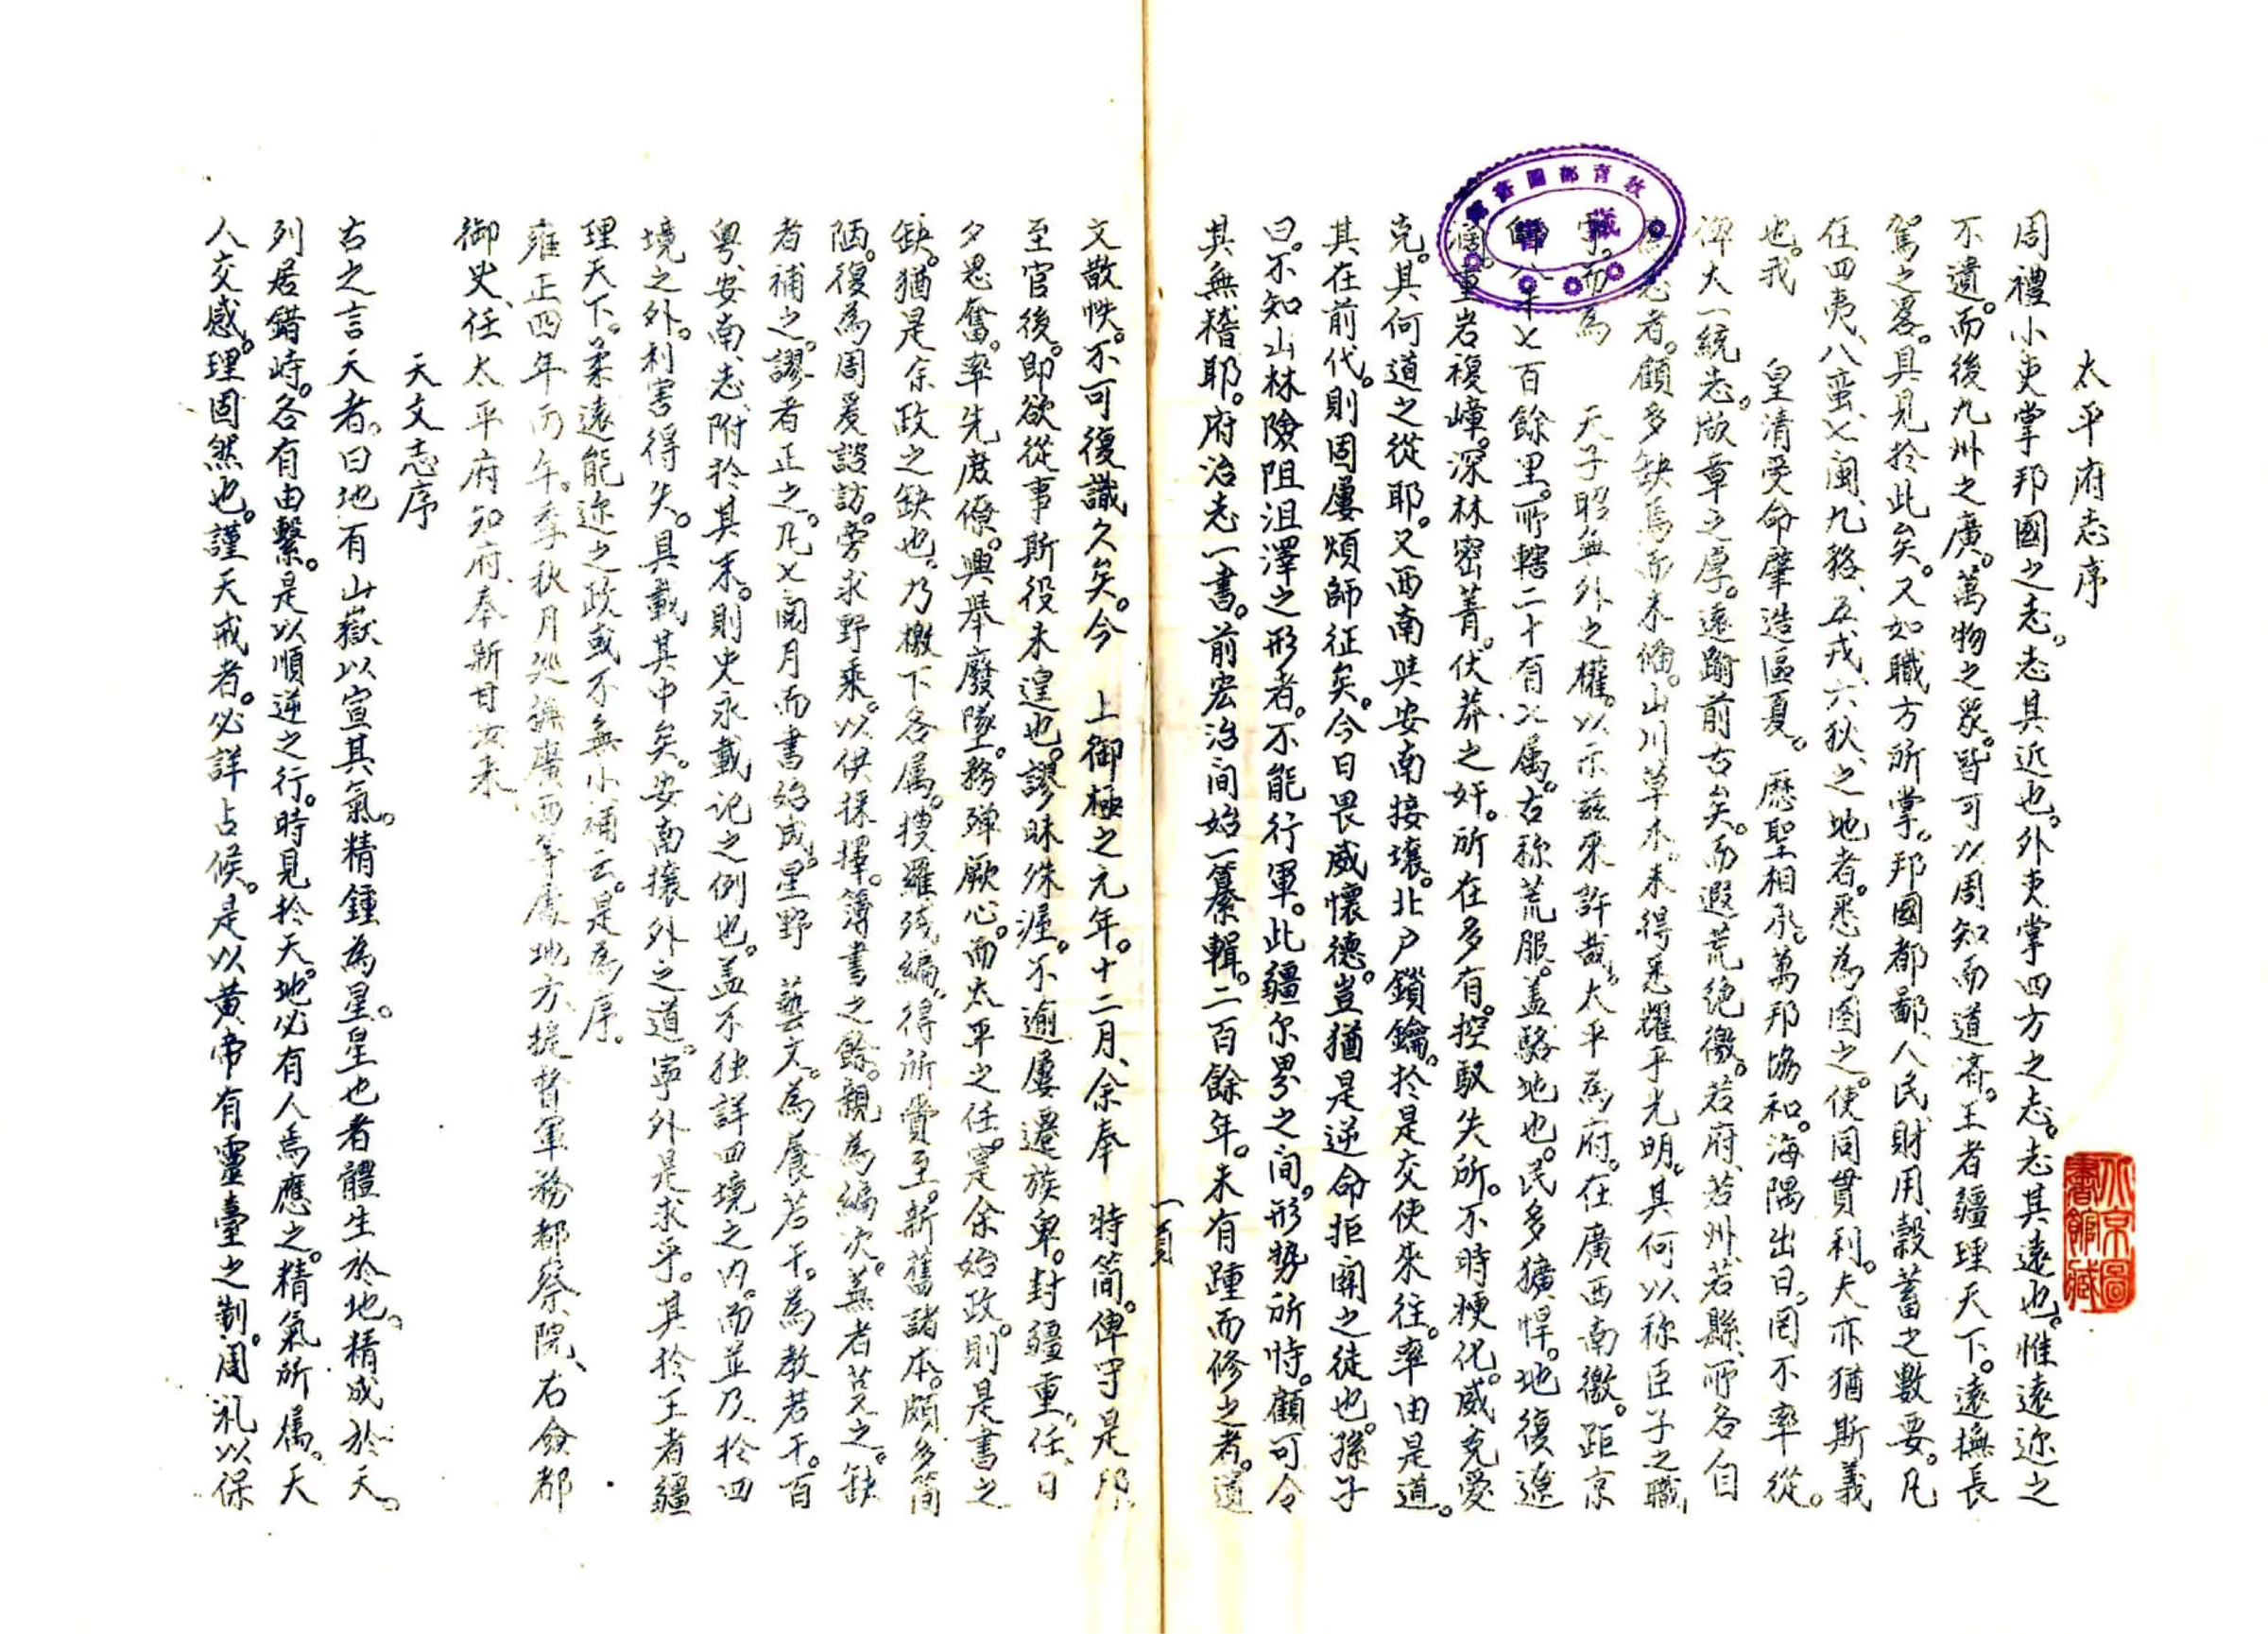 太平府志序
周禮小吏掌邦國之志。志其近也。外吏掌四方之志。志其遠也。惟遠迩之
不遺。而後九州之廣。萬物之衆。皆可以周知而道济。王者疆理天下。遠撫長
駕之畧。具見於此矣。又如職方所掌。邦國都鄙、人民、財用、穀蓄之數要。凡
在四夷、八蛮、七闽、九貉、五戎、六狄、之地者。悉為图之。使同貫利。夫亦猶斯義
也。我　　皇清受命肇造區夏。　歷聖相承。萬邦協和。海隅出日。罔不率從。
俾大一統志。版章之厚。遠踰前古矣。而遐荒绝徼。若府、若州、若縣、所各自
志者。顧多缺焉而未备。山川草木。未得悉耀乎光明。其何以称臣子之職
守。而為　　天子昭無外之權。以示兹來許哉。太平為府。在廣西南徼。距京
師八千七百餘里。所轄二十有七属。古称荒服。盖駱地也。民多獷悍。地復遼
濶。重岩複嶂。深林密菁。伏莽之奸。所在多有。控馭失所。不時梗化。威克愛
克。其何道之從耶。又西南與安南接壤。北户鎖鑰。於是交使来往。率由是道。
其在前代。則固屢煩師征矣。今日畏威懷德。豈猶是逆命拒関之徒也。孫子
曰。不知山林險阻沮澤之形者。不能行軍。此疆尔界之间。形势所恃。顧可令
其無稽耶。府治志一書。前宏治间始一纂輯。二百餘年。未有踵而修之者。遺
一頁
文散帙。不可復識久矣。今　上御極之元年。十二月、余奉　特简。俾守是邦、
至官後。即欲從事斯役未遑也。謬昧殊渥。不逾屢遷族卑。封疆重。任、日
夕思奮。率先庶僚。興舉廢墜。務殫厥心。而太平之任。寔余始政。則是書之
缺。猶是余政之缺也。乃檄下各属。搜羅残編。得所賫至。新舊諸本。頗多简
陋。復為周爰諮訪。旁求野乘。以供採擇。簿書之餘。親為編次。蕪者芟之。缺
者補之。謬者正之。凡七阅月而書始成。星野　藝文。為養若干。為教若干。百
粤、安南、志、附於其末。則史永載记之例也。盖不独詳四境之内。而並及、於四
境之外。利害得失。具載其中矣。安南壤外之道。寧外是求乎。其於王者疆
理天下。柔遠能迩之政或不無小補云。是為序。
雍正四年丙午。季秋月廵撫廣西等處地方、提督軍務都察院、右僉都
御史、任太平府知府、奉新甘汝来、
天文志序
古之言天者。曰地有山嶽以宣其氣。精鍾為星。星也者體生於地。精成於天。
列居錯峙。各有由繫。是以順逆之行。時見於天。地必有人焉應之。精氣所属。天
人交感。理固然也。謹天戒者。必詳占候。是以黄帝有靈臺之制。周礼以保
教育部圖書
藏書
北京圖書館藏